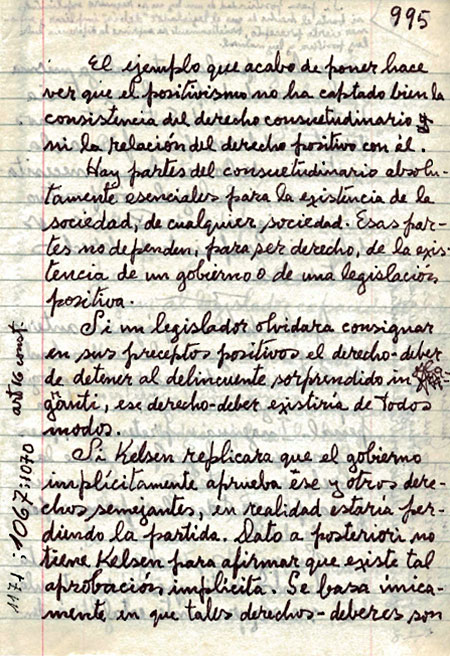 995
El ejemplo que acabo de poner hace
ver que el positivismo no ha captado bien la
consistencia del derecho consuetudinario y
ni la relación del derecho positivo con él.
Hay partes del consuetudinario absolu-
tamente esenciales para la existencia de la
sociedad, de cualquier sociedad. Esas par-
tes no dependen, para ser derecho, de la exis-
tencia de un gobierno o de una legislación
positiva.
Si un legislador olvidara consignar
en sus preceptos positivos el derecho-deber
de detener al delincuente sorprendido in
ganti, ese derecho-deber existiría de todos
modos.
Si Kelsen replicara que el gobierno
implícitamente aprueba ése y otros dere-
chos semejantes, en realidad estaría per-
diendo la partida. Dato a posteriori no
tiene Kelsen para afirmar que existe tal
aprobación implícita. Se basa única-
mente en que tales derechos-deberes son
1171; 1067; 1070 art 16 const.